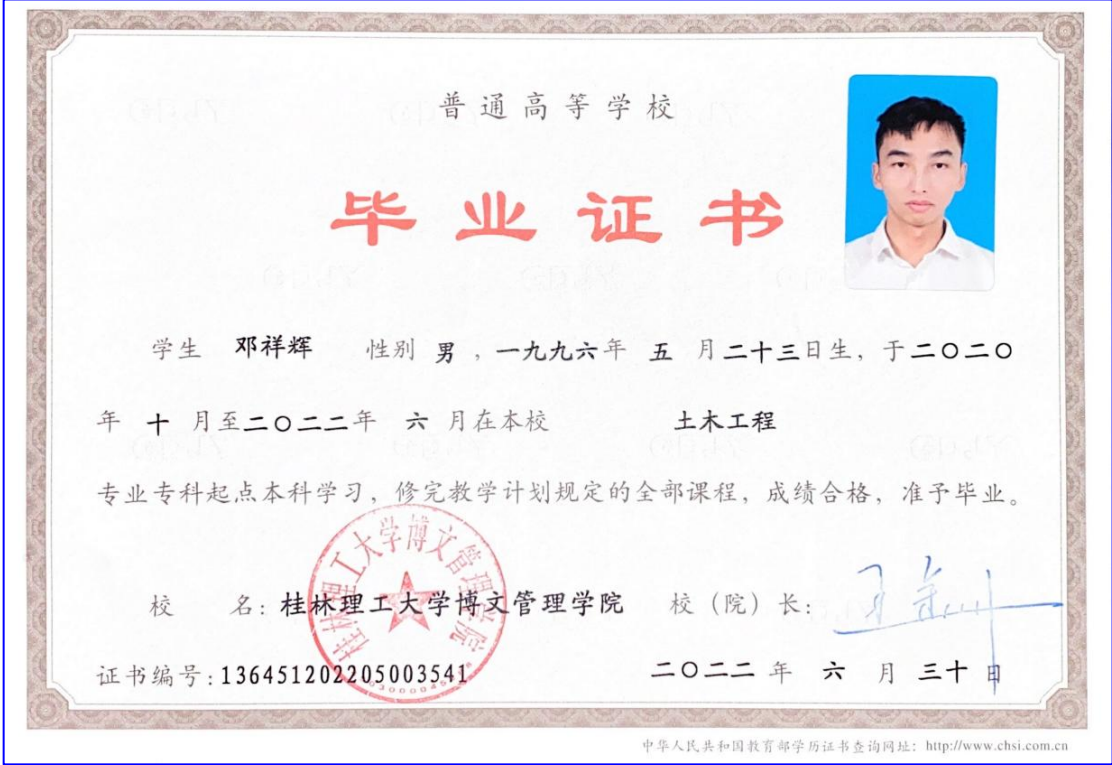 普通高等学校
毕业证书
学生 邓祥辉 性别 男 ，一九九六年 五 月二十三日生，于二〇二〇
年 十 月至二〇二二年 六 月在本校 土木工程
专业专科起点本科学习，修完教学计划规定的全部课程，成绩合格，准予毕业。
桂林理工大学博文管理学院
校 名：桂林理工大学博文管理学院 校（院）长：
证书编号：136451202205003541 二〇二二 年 六 月 三十 日
中华人民共和国教育部学历证书查询网址：http://www.chsi.com.cn